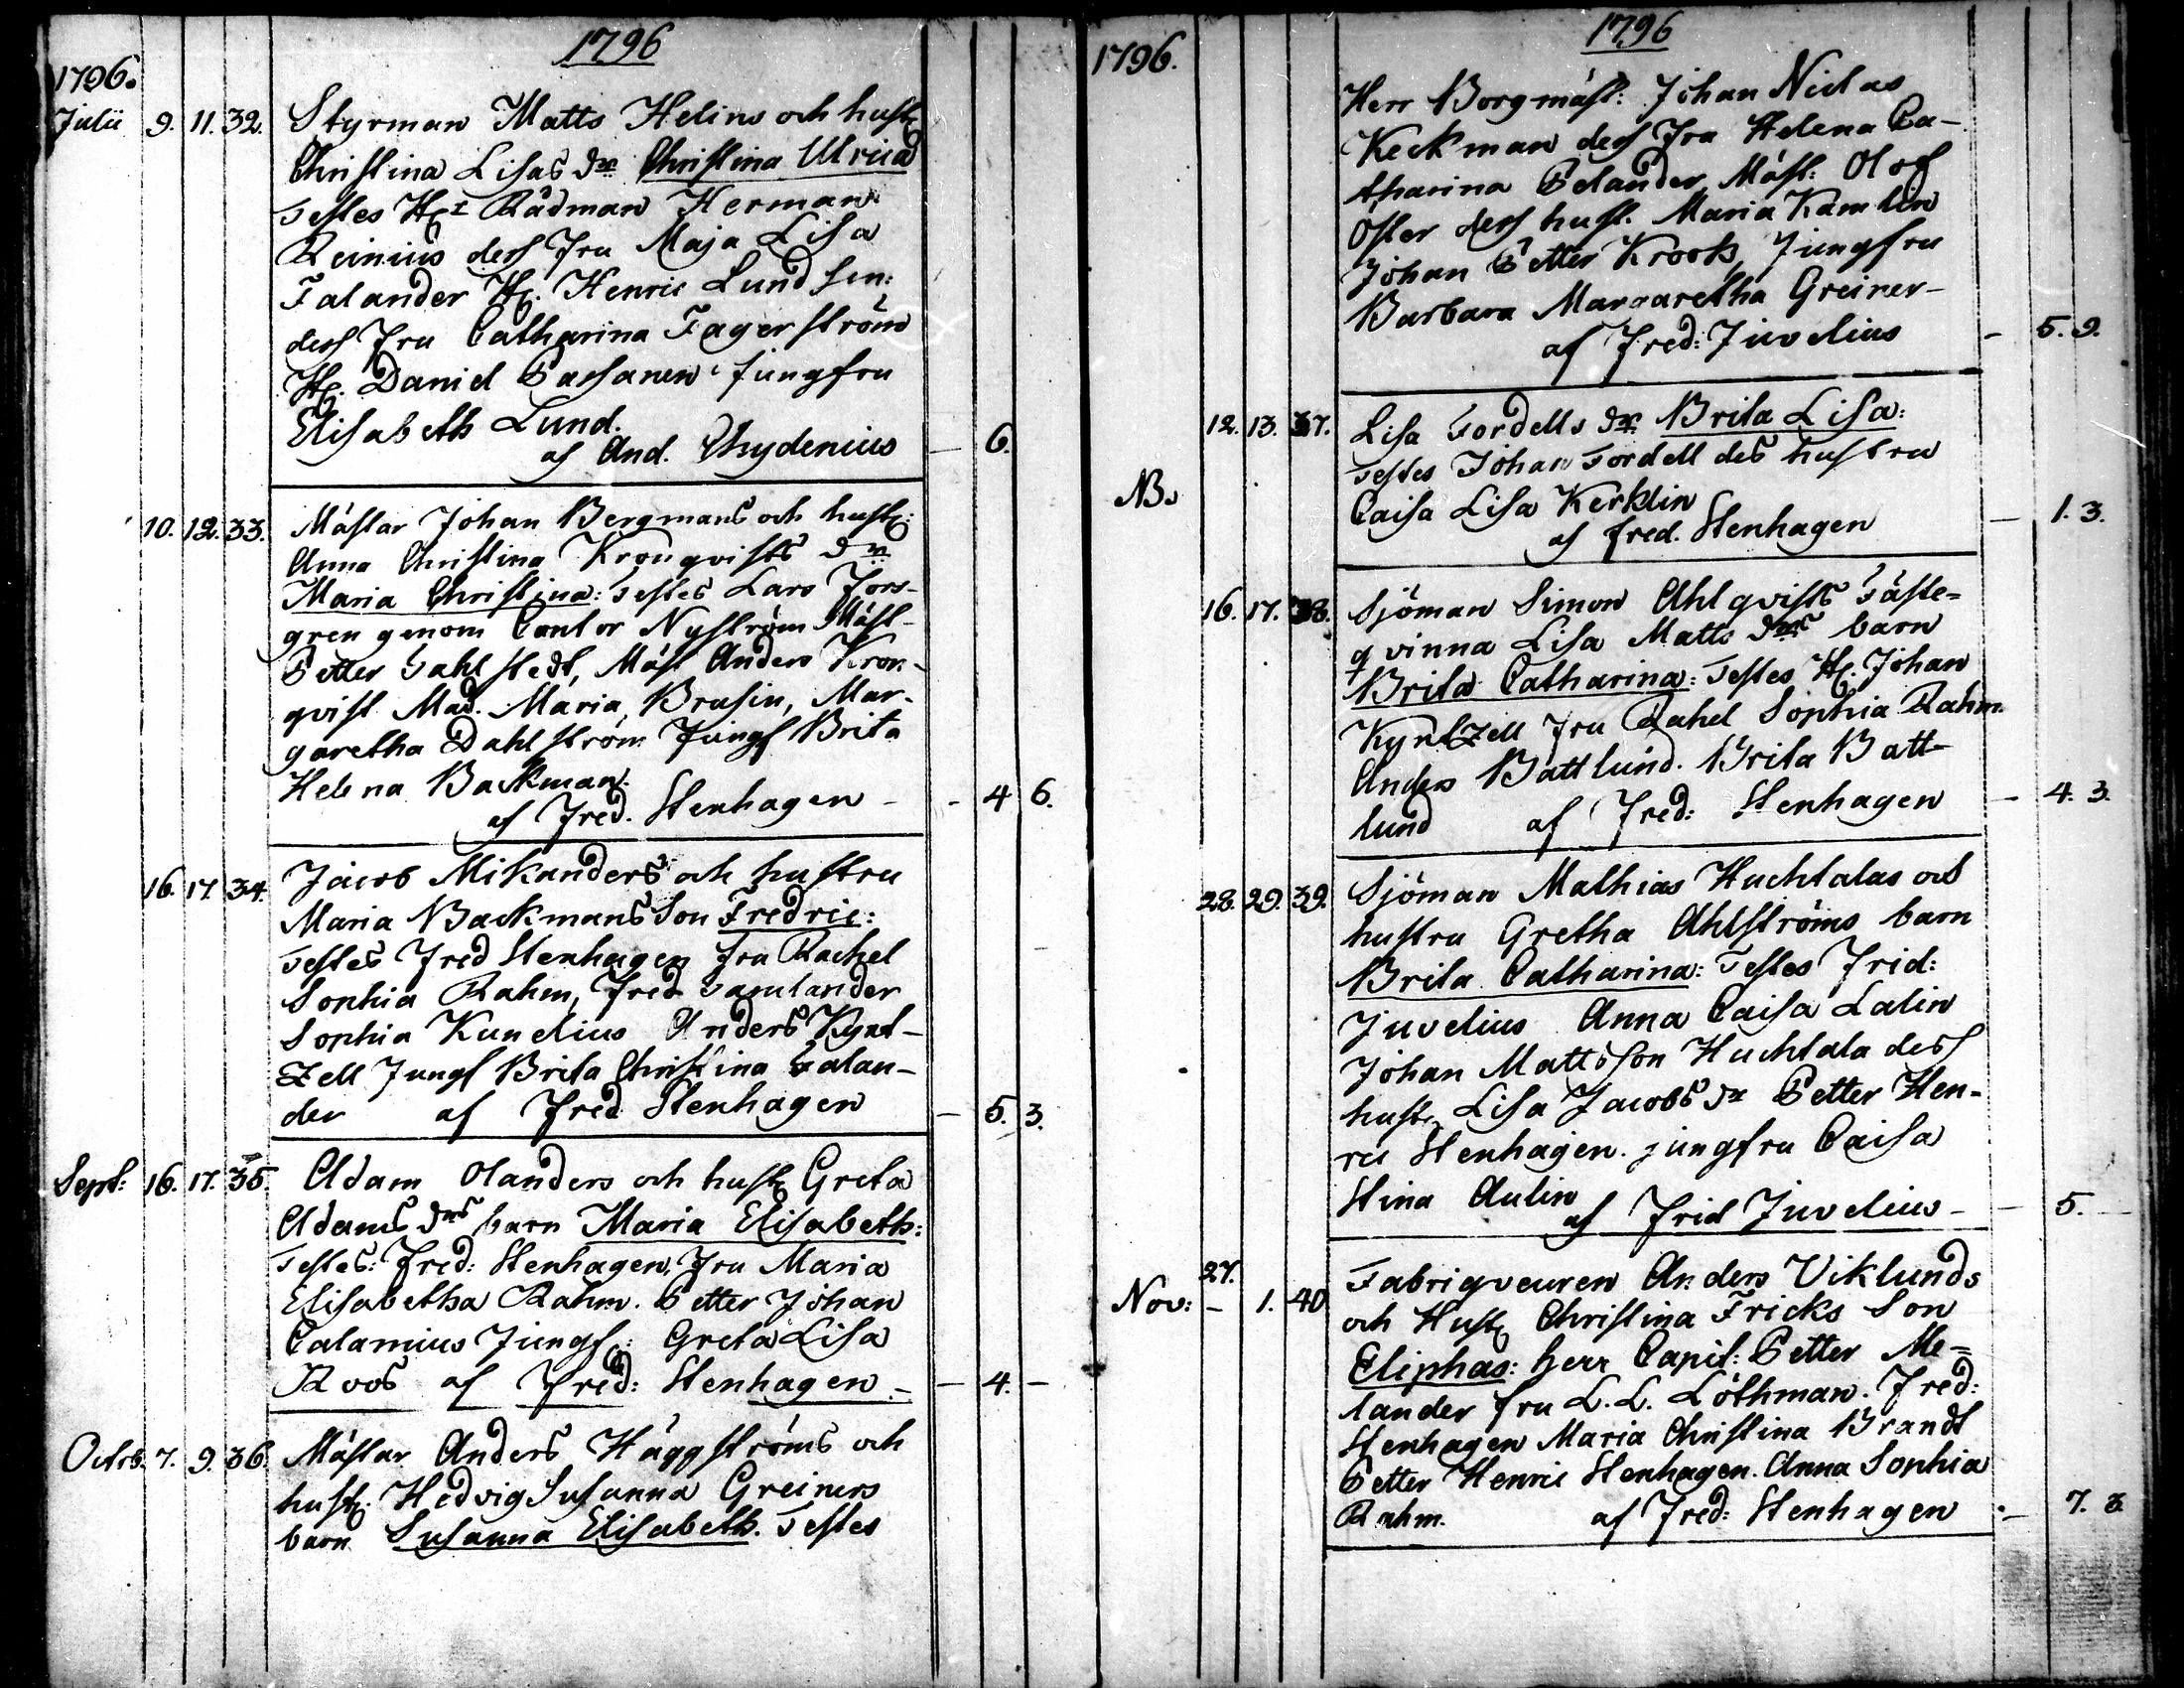 1796
1796.
Julii 9. 11. 32. Styrman Matts Helins och hust:
Christina Lisas dr Christina Ulrica
Testes Hr Rådman Herman
Reinius dess Fru Maja Lisa
Falander Hr. Henric Lund sen:
dess Fru Catharina Fagerström
Hr. Daniel Passanen Jungfru
Elisabeth Lund.
af And. Chydenius — 6.
10. 12. 33. Mästar Johan Bergmans och hust:
Anna Christina Kronqvists dr
Maria Christina: Testes Lars Fors-
gren genom Cantor Nyström Mäst-
Petter Dahlstedt, Mäst Anders Kron-
qvist Mad. Maria Brusin, Mar-
garetha Dahlström Jungf Brita
Helena Backman.
af Fred. Stenhagen - - 4 6.
16. 17. 34. Jacob Mikanders och hustru
Maria Backmans Son Fredric:
Testes Fred Stenhagen fru Rachel
Sophia Rahm, Fred Gamlander
Sophia Kunelius Anders Kynt-
zell Jungf Brita Christina Falan-
der af Fred Stenhagen — 5. 3.
Sept: 16. 17. 35. Adam Olanders och hust: Greta
Adams drs barn Maria Elisabeth:
Testes: Fred: Stenhagen, Fru Maria
Elisabetha Rahm. Petter Johan
Calamius Jungf: Greta Lisa
Roos af Fred: Stenhagen - — 4. —
Octob. 7. 9. 36. Mästar Anders Häggströms och
hust: Hedvig Susanna Greiners
barn Susanna Elisabeth. Testes
1796
1796.
Herr Borgmäst: Johan Niclas
Keckman dess Fru Helena Ca-
tharina Pelander, Mäst: Olof
Oster dess hust. Maria Kamlin
Johan Petter Krook, Jungfru
Barbara Margaretha Greiner-
af Fred: Juvelius - 5. 9.
12. 13. 37. Lisa Tordells dr Brita Lisa:
Testes Johan Tordell des hustru
NB.
Caisa Lisa Kerklin
af fred. Stenhagen — 1. 3.
16. 17. 38. Sjöman Simon Ahlqvists Fäste-
qvinna Lisa Matts drs barn
Brita Catharina: Testes Hr. Johan
Kyntzell Fru Rahel Sophia Rahm.
Anders Battlund. Brita Batt-
lund af Fred: Stenhagen — 4. 3.
28. 29. 39. Sjöman Mathias Huchtalas och
hustru Gretha Ahlströms barn
Brita Catharina: Testes Frid:
Juvelius Anna Caisa Lalin
Johan Mattsson Huchtala dess
hust: Lisa Jacobs dr Petter Hen-
ric Stenhagen. jungfru Caisa
Stina Aulin
af Frid Juvelius - — 5. —
27.
Nov: - 1. 40 Fabriqveuren Anders Viklunds
och Hust: Christina Fricks Son
Eliphas: herr Capit: Petter Me-
lander fru L. L. Löthman. Fred:
Stenhagen Maria Christina Brandt
Petter Henric Stenhagen. Anna Sophia
Rahm. af Fred: Stenhagen - 7. 3.